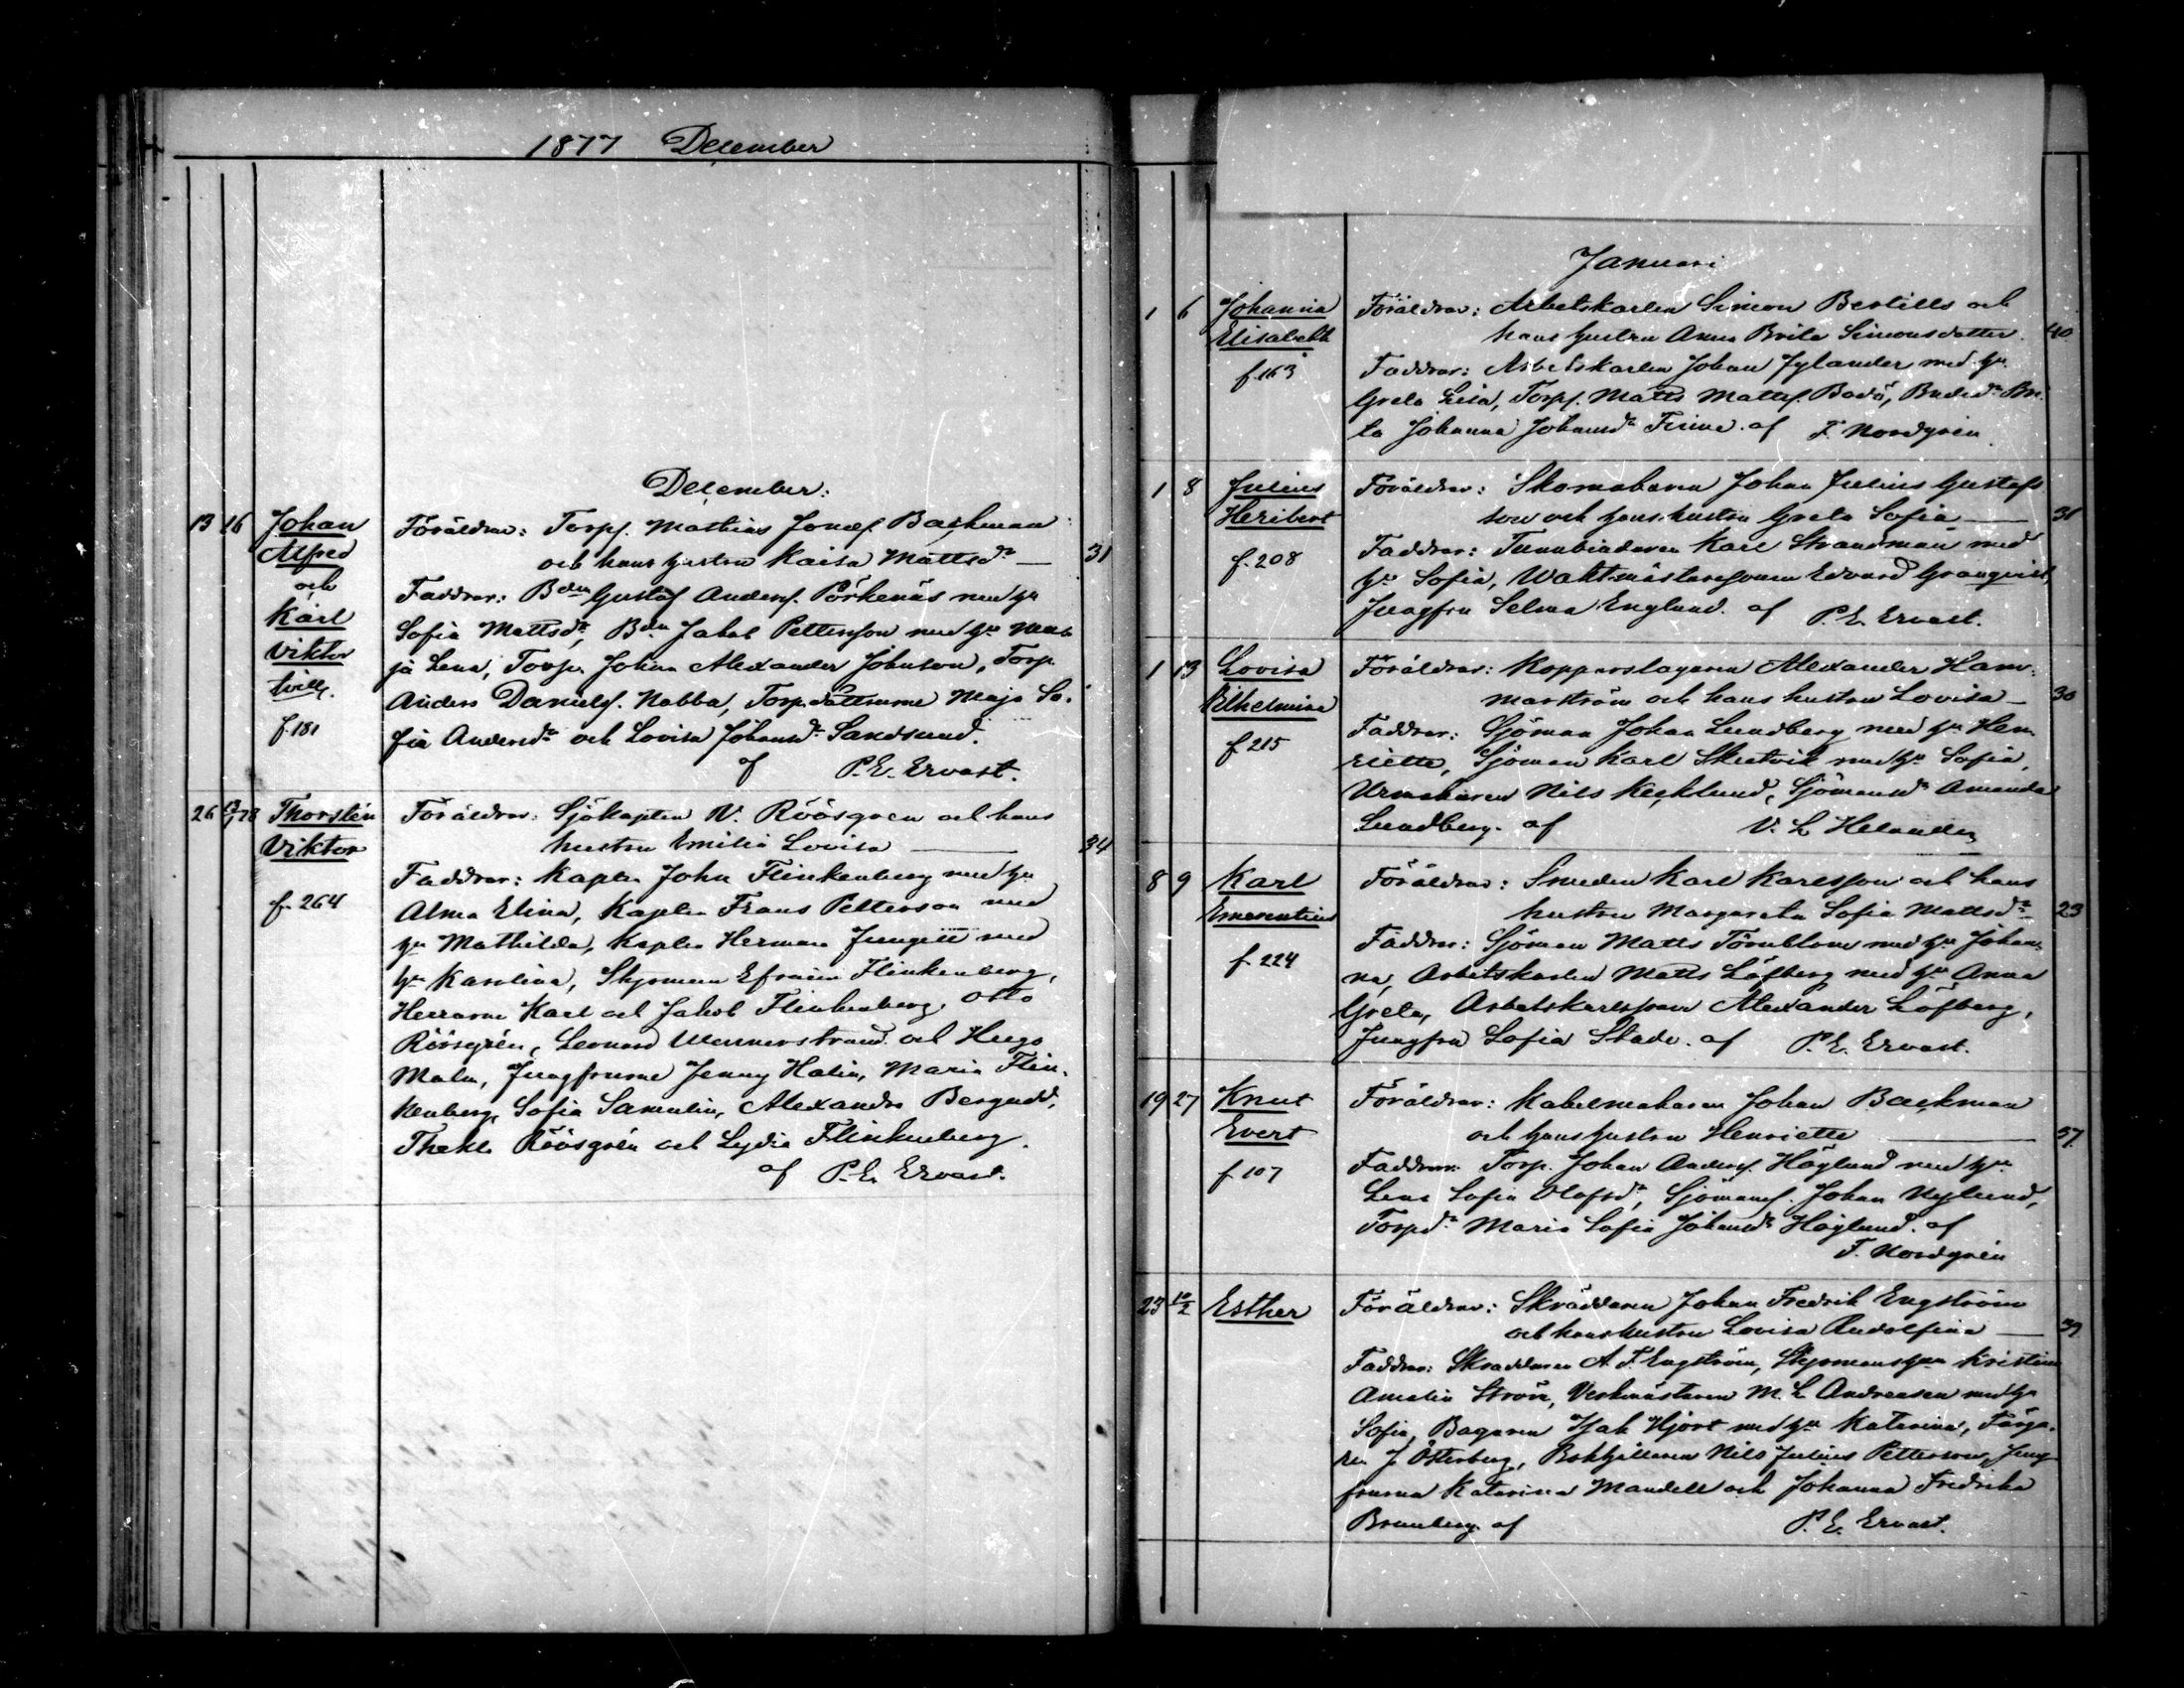 1877 December
December:
13 16 Johan Föräldrar: Torpf. Mathias Jonæf. Backman
Alfred och hans hustru Kaisa Mattsdr — 31
och Faddrar: Bdn Gustaf Andersf. Pörkenäs med hu
Karl Sofia Mattsdr, Bdn Jakob Pettersson med hu Ma-
Viktor ja Lena, Torpn Johan Alexander Johnson, Torp.
tvill. Anders Danielsf. Nabba, Torp.döttrarne Maja So-
f. 181 fia Andersdr och Lovisa Johansdr Sandsund.
af P. E. Ervast.
26 13/1 78 Thorstén Föräldrar: Sjökapten V. Röösgren och hans
Viktor hustru Emilia Lovisa — 34
Faddrar: Kapten John Flinkenberg med hu
f. 264 Alma Elina, Kapten Frans Petterson med
hu Mathilda, Kapten Herman Jungell med
hu Karolina, Skepparen Efraim Flinkenberg,
Herrarne Karl och Jakob Flinkenberg, Otto
Röösgrén, Leonard Wennerstrand och Hugo
Malm, Jungfrurne Jenny Halin, Maria Flin-
kenberg, Sofia Samulin, Alexandra Bergudd,
Thekla Röösgrén och Lydia Flinkenberg.
af P. E. Ervast.
Januari
1 6 Johanna Föräldrar: Arbetskarlen Simon Bertills och
Elisabeth hans hustru Anna Brita Simonsdotter. 40
f. 163 Faddrar: Arbetskarlen Johan Jylander med hu
Greta Lisa, Torpf. Matts Mattsf. Bodö, Bndedr Bri-
ta Johanna Johansdr Finne. af F. Nordgrén.
1 8 Julius Föräldrar: Skomakaren Johan Julius Gustafs
Heribert son och hans hustru Greta Sofia — 31
f. 208 Faddrar: Tunnbindaren Karl Strandman med
hu Sofia, Waktmästaresonen Edvard Granqvist,
Jungfru Selma Englund. af P. E. Ervast.
1 13 Lovisa Föräldrar: Kopparslagaren Alexander Ham-
Vilhelmina marström och hans hustru Lovisa — 30
f. 215 Faddrar: Sjöman Johan Lundberg med hu Hen-
riette, Sjöman Karl Skutvik med hu Sofia,
Urmakaren Nils Kecklund, Sjömansdr Amanda
Lundberg. af V. L. Helander
8 9 Karl Föräldrar: Smeden Karl Karlsson och hans
Emerentius hustru Margareta Sofia Mattsdr 23
f. 224 Faddrar: Sjöman Matts Törnblom med hu Johan-
na, Arbetskarlen Matts Löfberg med hu Anna
Greta, Arbetskarlssonen Alexander Löfberg,
Jungfru Sofia Stade. af P. E. Ervast.
19 27 Knut Föräldrar: Kakelmakaren Johan Backman
Evert och hans hustru Henriette — 37
f. 107 Faddrar: Torp. Johan Andersf. Höglund med hu
Lena Sofia Olofsdr, Sjömansf. Johan Nylund,
Torpdr Maria Sofia Johansdr Höglund. af
F. Nordgrén
23 10/2 Esther Föräldrar: Skräddaren Johan Fredrik Engström
och hans hustru Lovisa Rudolfina — 39
Faddrar: Skräddaren A. F. Engström, Skepparehun Kristina
Amalia Ström, Verkmästaren M. L. Andreasen med hu
Sofia, Bagaren Isak Hjort med hu Katarina, Färga-
ren J. Österberg, Bokhållaren Nils Julius Petterson, Jung-
frurna Katarina Mandell och Johanna Fredrika
Brunberg. af P. E. Ervast.